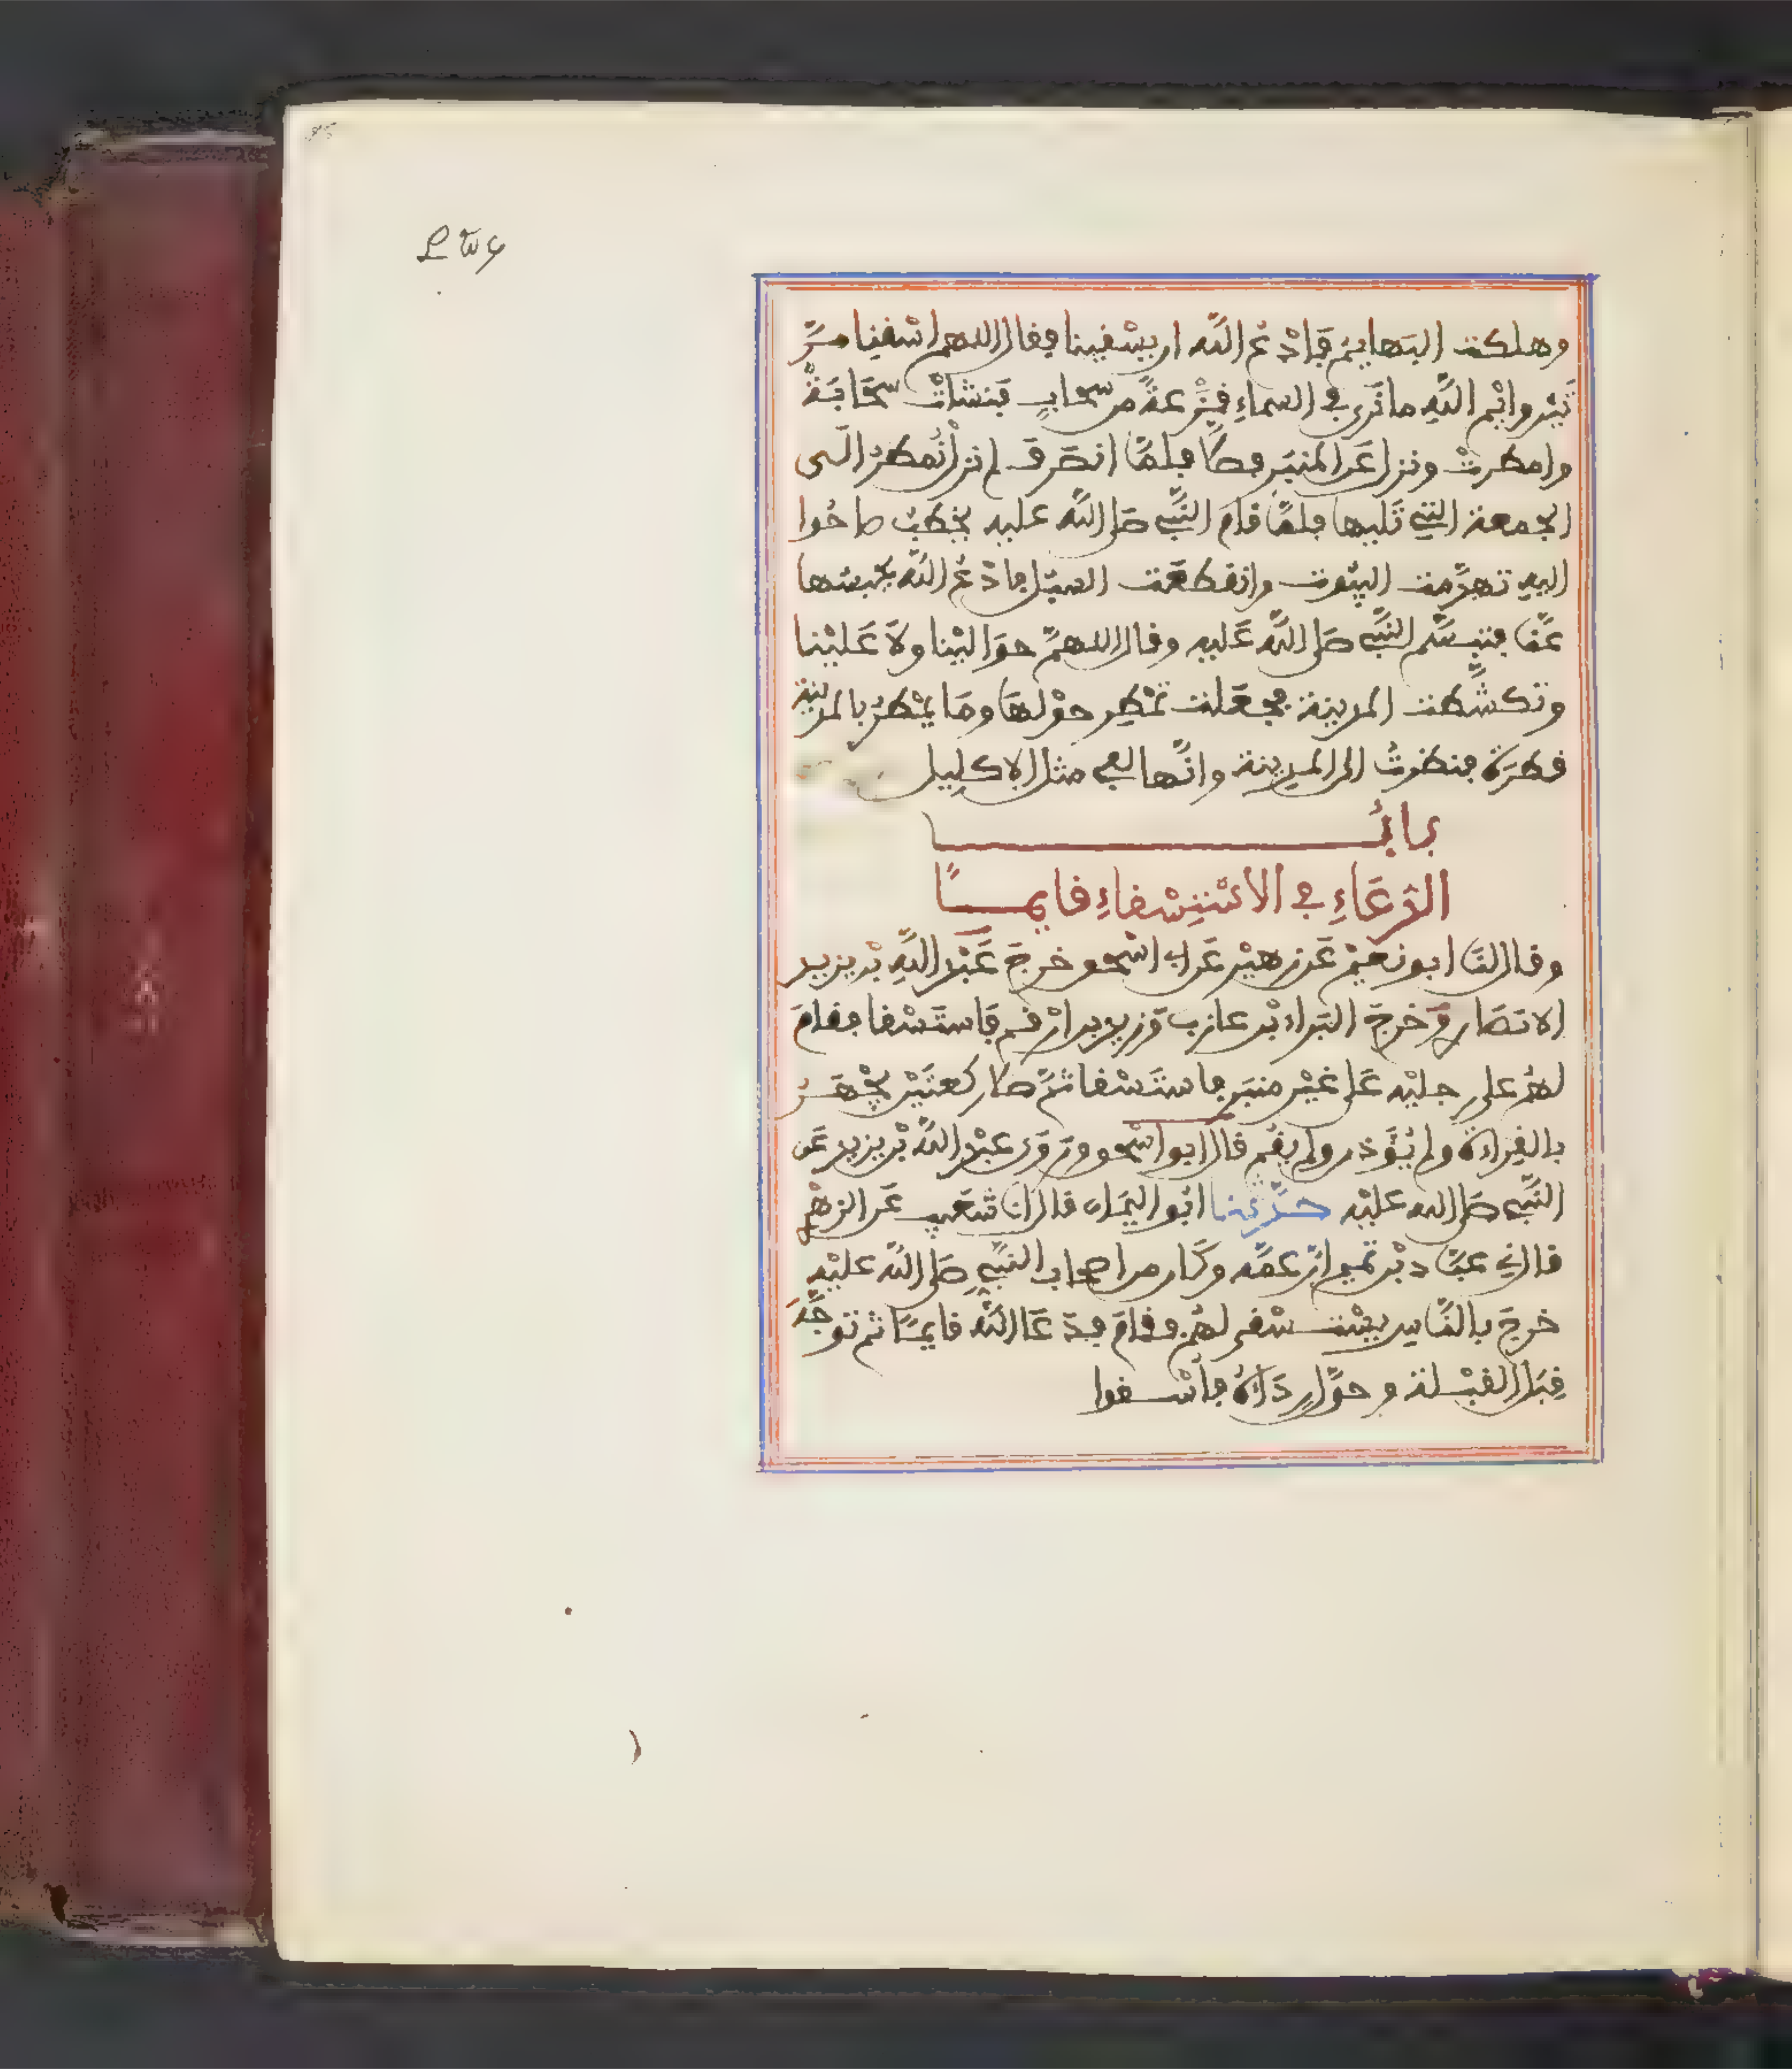 وهلكت البهايم فادع الله ان يسقينا فقال اللهم اسقنا مرّ
تين وايم الله ما نرى في السماء قزعة من سحاب فنشات سحابة
وامطرت ونزل عن المنبر فصلا فلما انصرف لم نزل نمطر الى
الجمعة التي تليها فلما قام النبي صلى الله عليه يخطب صاحوا
اليه تهدمت البيوت وانقطعت السبل فادع الله يحبسها
عنا فتبسم النبي صلى الله عليه وقال اللهم حوالينا ولا علينا
وتكشطت المدينة فجعلت تمطر حولها وما يمطر بالمدينة
قطرة فنظرت الى المدينة وانها لفي مثل الاكليل
باب
الدعاء في الاستسقاء قايما
وقال لنا ابو نعيم عن زهير عن ابي اسحق خرج عبد الله بن يزيد
الانصاري وخرج البراء بن عازب وزيد بن ارقم فاستسقا فقام
لهم على رجليه على غير منبر فاستسقا ثم صلا ركعتين يجهر
بالقراءة ولم يؤذن ولم يقم قال ابو اسحق وروى عبد الله بن يزيد عن
النبي صلى الله عليه حدثنا ابو اليمان قال انا شعيب عن الزهري
قال ني عباد بن تميم ان عمه وكان من اصحاب النبي صلى الله عليه
خرج بالناس يستسقي لهم فقام فدعا الله قايما ثم توجه
قبل القبلة وحول رداءه فأسقوا